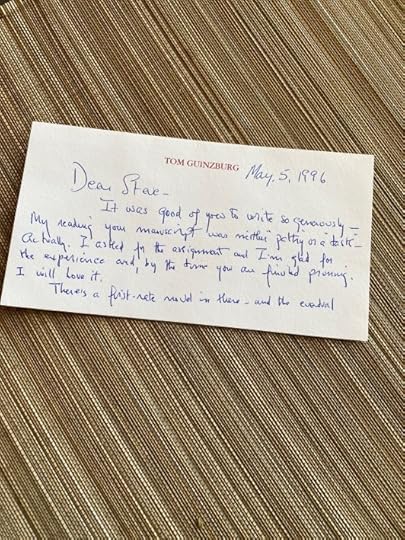 TOM GUINZBURG May, 5, 1996
Dear Steve -
It was good of you to write so generously -
My reading your manuscript was neither petty or a task -
Actually. I asked for the assignment and I'm glad for
the experience and, by the time you are finished pruning.
I will love it.
There's a first-rate novel in there - and the